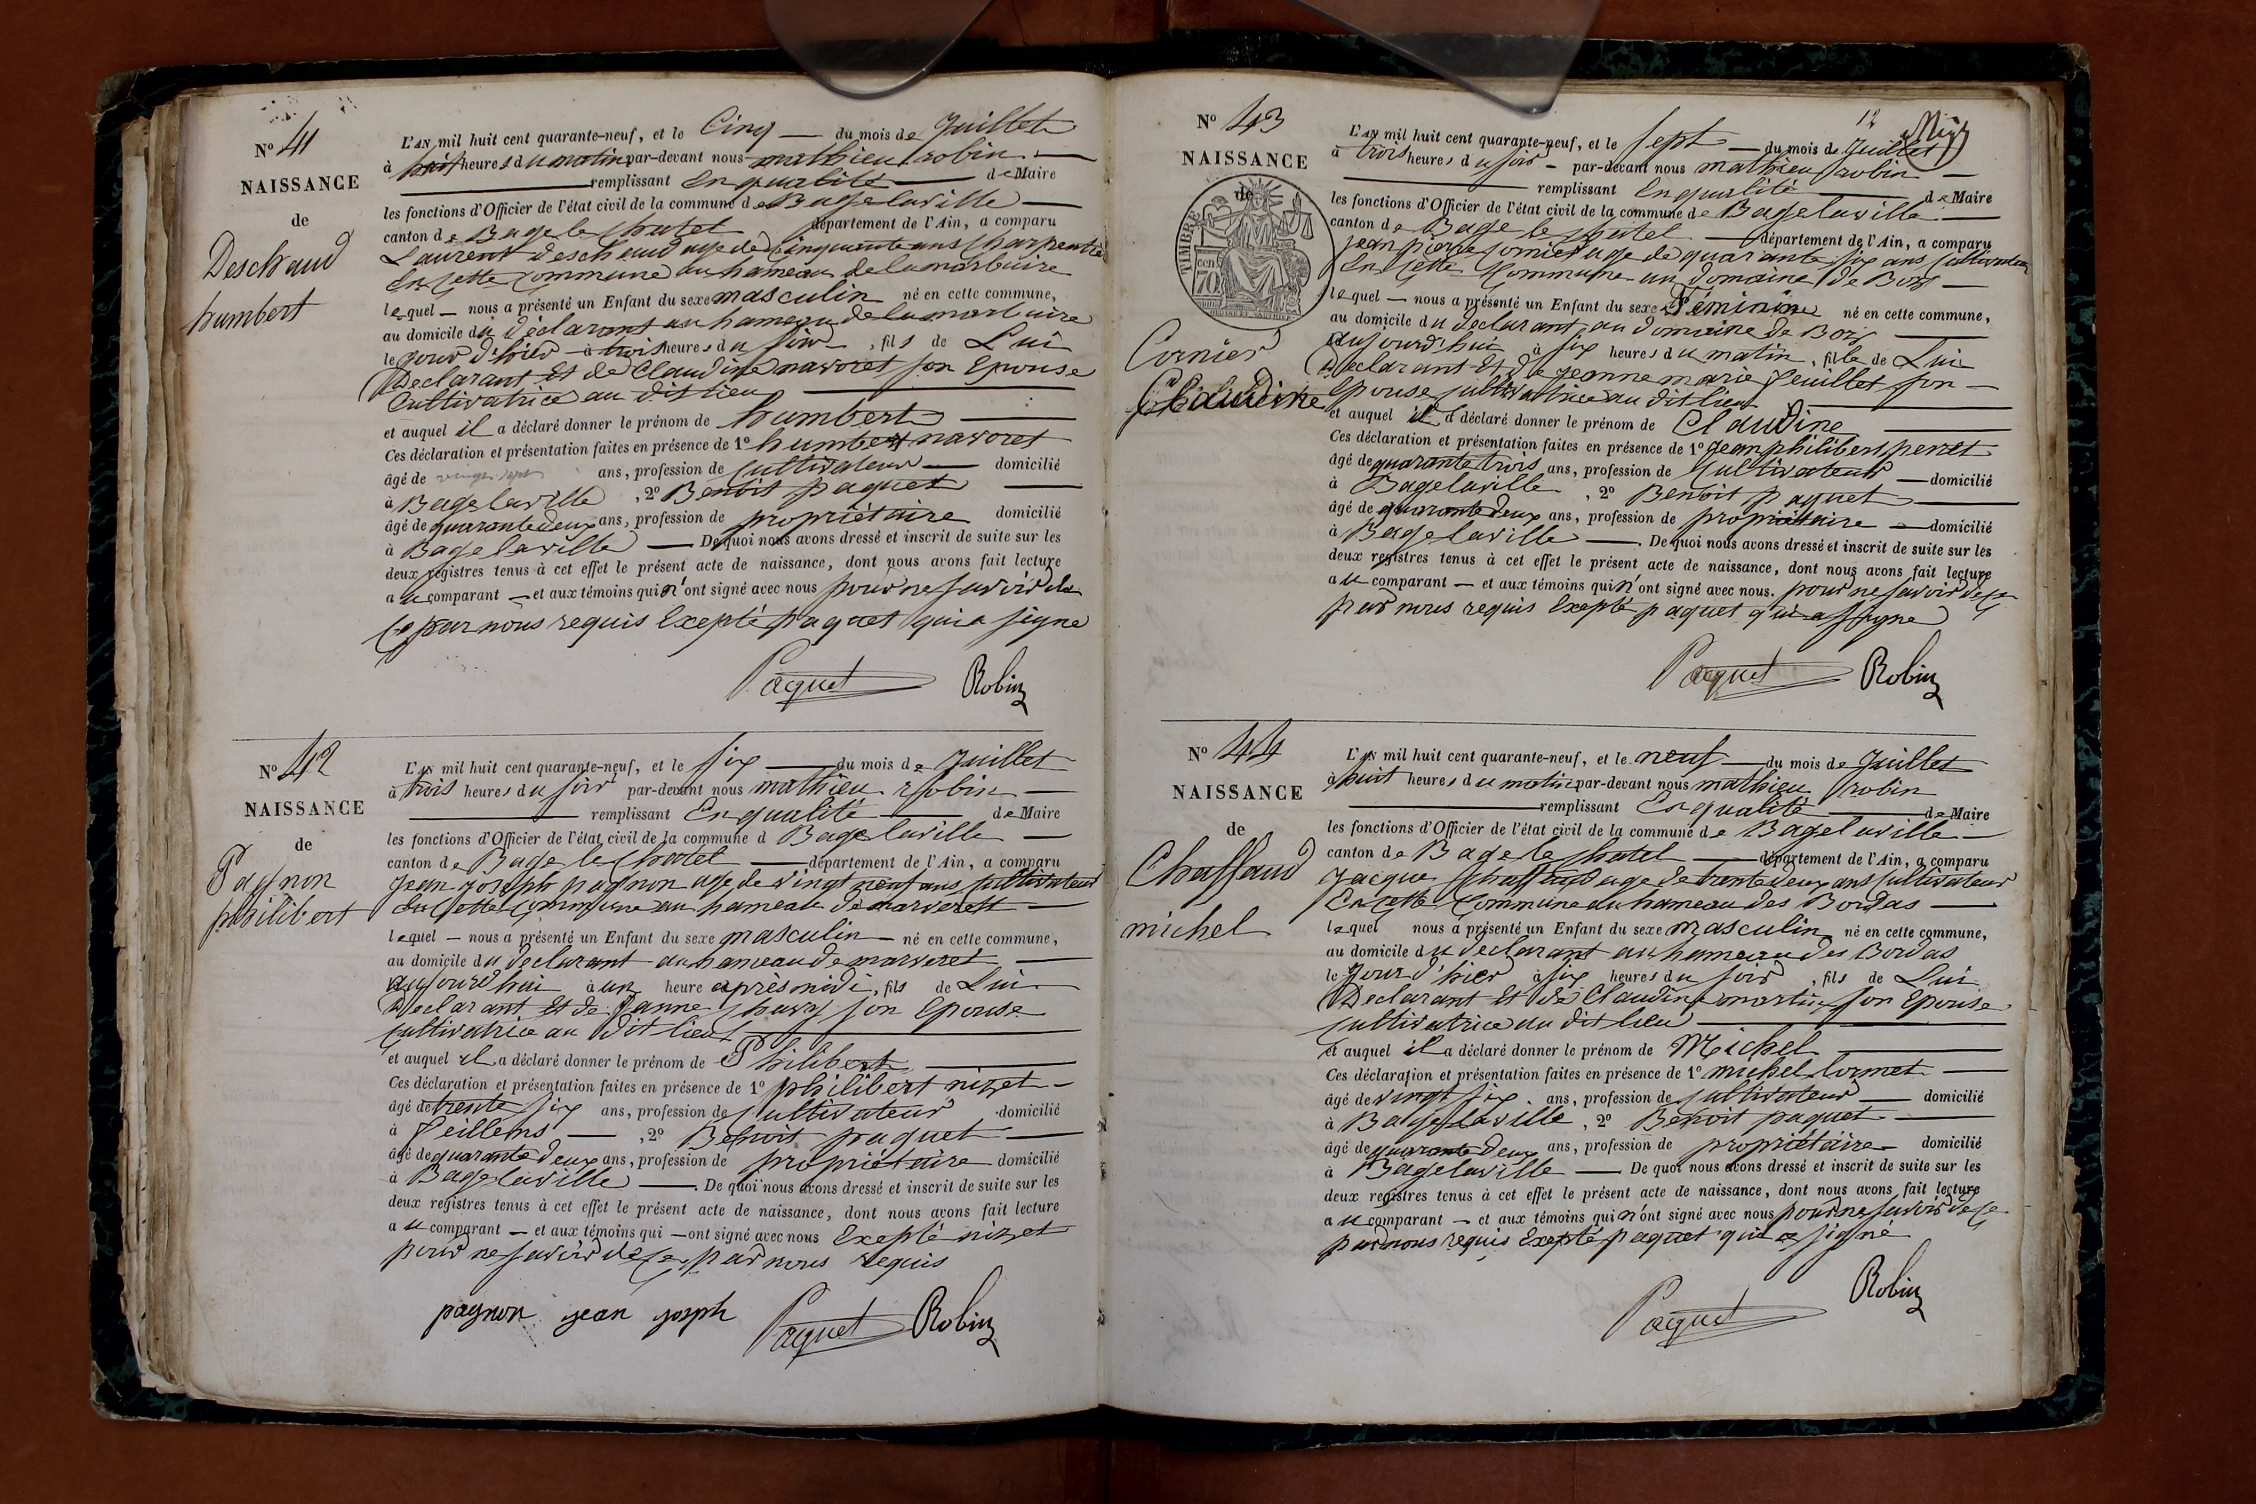 N° 41
NAISSANCE
de
Deschaud
humbert
L'AN mil huit cent quarante-neuf, et le Cinq — du mois de Juillet
à huit heures du matin par-devant nous mathieu robin —
remplissant En qualité — de Maire
les fonctions d'Officier de l'état civil de la commune de Bagelaville —
canton de Bage le Chatel département de l'Ain, a comparu
Laurent deschaud age de Cinquante ans Charpentier
En Cette Commune au hameau de lamarbuire
lequel — nous a présenté un Enfant du sexe masculin né en cette commune,
au domicile du déclarant au hameau de lamarbuire
le jour d'hier à trois heures du soir, fils de Lui
Déclarant Et de Claudine navoret son Epouse
Cultivatrice au dit lieu
et auquel il a déclaré donner le prénom de humbert
Ces déclaration et présentation faites en présence de 1° humbert navoret
âgé de vingt sept ans, profession de Cultivateur — domicilié
à Bagelaville, 2° Benoit paquet —
âgé de quarante deux ans, profession de propriétaire domicilié
à Bagelaville — De quoi nous avons dressé et inscrit de suite sur les
deux registres tenus à cet effet le présent acte de naissance, dont nous avons fait lecture
au comparant — et aux témoins qui n'ont signé avec nous pour ne savoir de
Ce par nous requis Exepté paquet qui a signe
Paquet Robin
N° 42
NAISSANCE
de
Pagnon
philibert
L'AN mil huit cent quarante-neuf, et le six — du mois de Juillet
à trois heures du soir par-devant nous mathieu robin —
remplissant En qualité — de Maire
les fonctions d'Officier de l'état civil de la commune d Bagelaville —
canton de Bage le Chatel — département de l'Ain, a comparu
Jean Joseph pagnon age de vingt neuf ans Cultivateur
En Cette Commune au hameau de marveret —
lequel — nous a présenté un Enfant du sexe masculin — né en cette commune,
au domicile du déclarant au hameau de marveret —
aujourd'hui à un heure après midi, fils de Lui
Déclarant Et de Janne son Epouse
Cultivatrice au dit lieu
et auquel il a déclaré donner le prénom de Philibert
Ces déclaration et présentation faites en présence de 1° philibert nizet —
âgé de trente six ans, profession de Cultivateur domicilié
à feillens —, 2° Benoit paquet —
âgé de quarante deux ans, profession de propriétaire domicilié
à Bagelaville — De quoi nous avons dressé et inscrit de suite sur les
deux registres tenus à cet effet le présent acte de naissance, dont nous avons fait lecture
au comparant — et aux témoins qui — ont signé avec nous Exepté nizet
pour ne savoir de Ce par nous requis
pagnon jean joseph Paquet Robin
12
N° 43
NAISSANCE
de
TIMBRE
70
Cornier
Claudine
L'AN mil huit cent quarante-neuf, et le sept — du mois de Juillet
à trois heures du soir — par-devant nous mathieu robin —
remplissant En qualité — de Maire
les fonctions d'Officier de l'état civil de la commune de Bagelaville —
canton de Bage le Chatel — département de l'Ain, a comparu
jean pierre Cornier age de quarante six ans Cultivateur
En Cette Commune au domaine de Bois —
lequel — nous a présenté un Enfant du sexe Féminin né en cette commune,
au domicile du déclarant au domaine de Bois
aujourd'hui à six heures du matin, fille de Lui
Déclarant Et de jeanne marie feuillet son —
Epouse Cultivatrice au dit lieu
et auquel il a déclaré donner le prénom de Claudine
Ces déclaration et présentation faites en présence de 1° jean philibert perret
âgé de quarante trois ans, profession de Cultivateur — domicilié
à Bagelaville, 2° Benoit paquet
âgé de quarante deux ans, profession de propriétaire — domicilié
à Bagelaville — De quoi nous avons dressé et inscrit de suite sur les
deux registres tenus à cet effet le présent acte de naissance, dont nous avons fait lecture
au comparant — et aux témoins qui n'ont signé avec nous. pour ne savoir de Ce
par nous requis Exepté paquet qui a signe
Paquet Robin
N° 44
NAISSANCE
de
Chaffaud
michel
L'AN mil huit cent quarante-neuf, et le neuf — du mois de Juillet
à huit heures du matin par-devant nous mathieu robin
remplissant En qualité — de Maire
les fonctions d'Officier de l'état civil de la commune de Bagelaville —
canton de Bage le Chatel — département de l'Ain, a comparu
Jacque Chaffaud age de trente deux ans Cultivateur
En Cette Commune au hameau des Bordas —
lequel nous a présenté un Enfant du sexe masculin né en cette commune,
au domicile du déclarant au hameau des Bordas
le Jour d'hier à six heures du soir, fils de Lui
Déclarant Et de Claudine martin son Epouse
Cultivatrice au dit lieu
et auquel il a déclaré donner le prénom de Michel
Ces déclaration et présentation faites en présence de 1° michel lornet —
âgé de vingt six ans, profession de Cultivateur — domicilié
à Bagelaville, 2° Benoit paquet
âgé de quarante deux ans, profession de propriétaire — domicilié
à Bagelaville — De quoi nous avons dressé et inscrit de suite sur les
deux registres tenus à cet effet le présent acte de naissance, dont nous avons fait lecture
au comparant — et aux témoins qui n'ont signé avec nous pour ne savoir de Ce
par nous requis Exepté paquet qui a signé
Paquet Robin